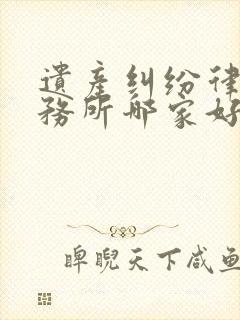 遺產糾紛律
務所哪家好
睥睨天下咸鱼